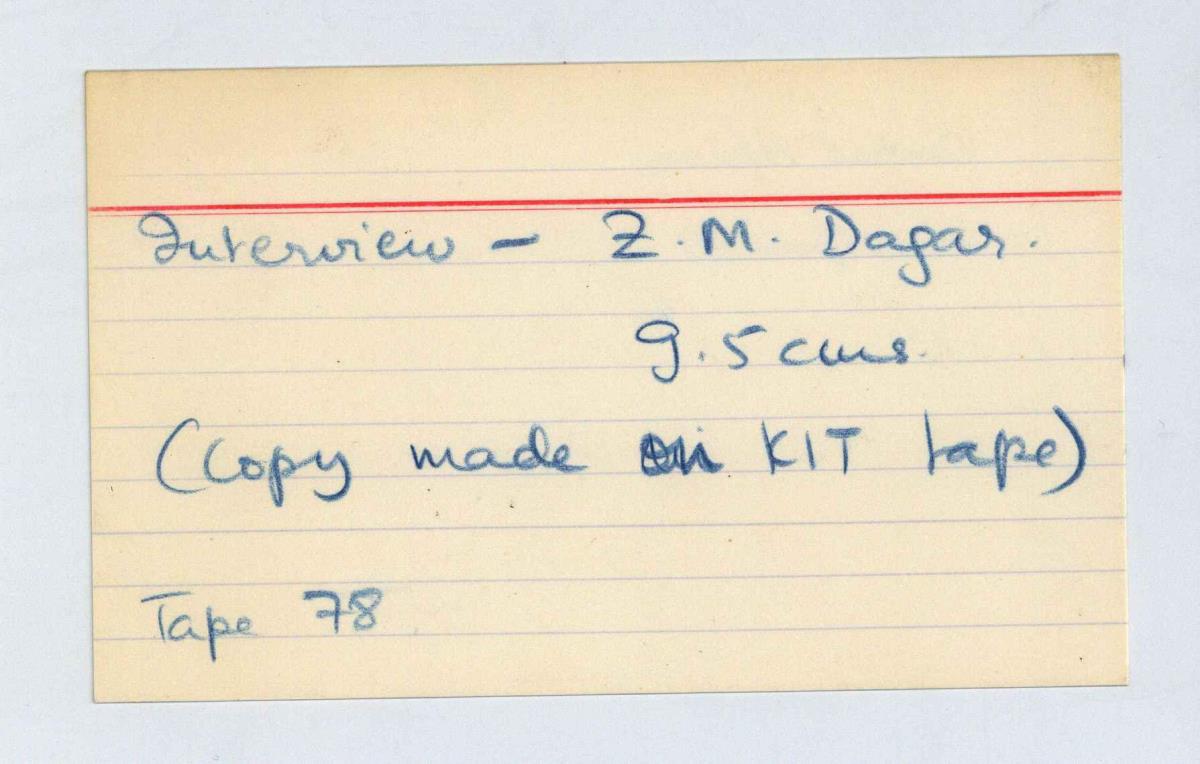 Interview – Z. M. Dagar.
9.5 cms.
(Copy made on KIT tape)
Tape 78